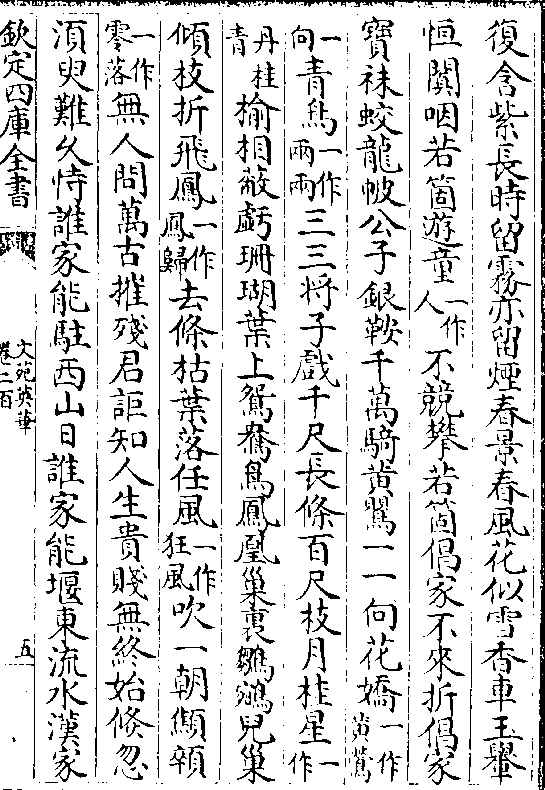 復含紫長時留霧亦留煙春景春風花似雪香車玉轝
恒闐咽若箇遊童一作人不競攀若箇倡家不來折倡家
寶袜蛟龍帔公子銀鞍千萬騎黄鸎一一向花嬌一作黄鶯
一向青鳥一作兩兩三三將子戲千尺長條百尺枝月桂星一作
丹桂青榆相蔽虧珊瑚葉上鴛鴦鳥鳳凰巢裏鶵鵷兒巢
傾枝折飛鳳一作鳳歸去條枯葉落任風一作狂風吹一朝顦顇
一作零落無人問萬古摧殘君詎知人生貴賤無終始倐忽
須臾難久恃誰家能駐西山日誰家能堰東流水漢家
欽定四庫全書
文苑英華
卷二百
五